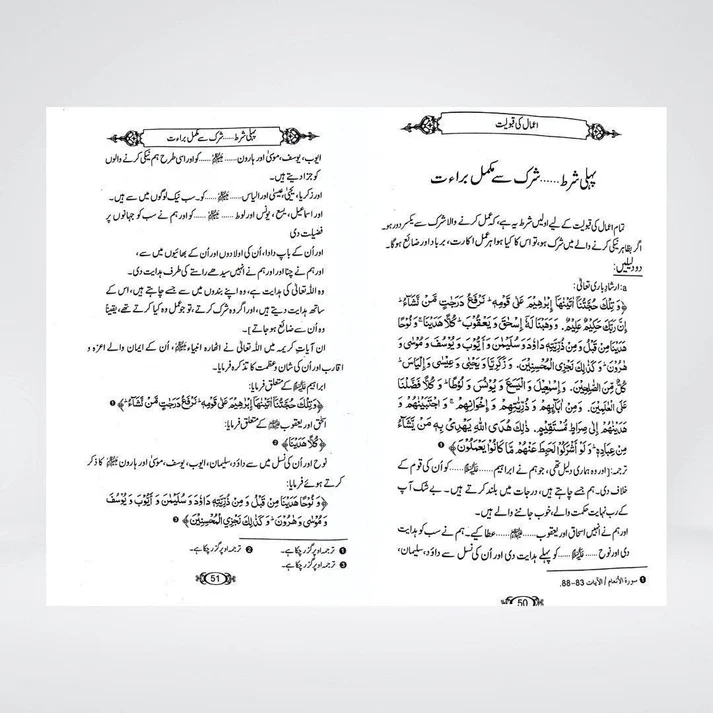 اعمال کی قبولیت
پہلی شرط ...... شرک سے مکمل براءت
تمام اعمال کی قبولیت کے لیے اولیں شرط یہ ہے، کہ عمل کرنے والا شرک سے یکسر دور ہو۔
اگر بظاہر نیکی کرنے والے میں شرک ہو، تو اس کا کیا ہوا ہر عمل اکارت، برباد اور ضائع ہو گا۔
دو دلیلیں:
a: ارشادِ باری تعالیٰ:
﴿وَ تِلْكَ حُجَّتُنَآ اٰتَيْنٰهَآ اِبْرٰهِيْمَ عَلٰى قَوْمِهٖ ؕ نَرْفَعُ دَرَجٰتٍ مَّنْ نَّشَآءُ ؕ
اِنَّ رَبَّكَ حَكِيْمٌ عَلِيْمٌ. وَ وَهَبْنَا لَهٗٓ اِسْحٰقَ وَ يَعْقُوْبَ ؕ كُلًّا هَدَيْنَا ۚ وَ نُوْحًا
هَدَيْنَا مِنْ قَبْلُ وَ مِنْ ذُرِّيَّتِهٖ دَاوٗدَ وَ سُلَيْمٰنَ وَ اَيُّوْبَ وَ يُوْسُفَ وَ مُوْسٰى وَ
هٰرُوْنَ ؕ وَ كَذٰلِكَ نَجْزِي الْمُحْسِنِيْنَ. وَ زَكَرِيَّا وَ يَحْيٰى وَ عِيْسٰى وَ اِلْيَاسَ ؕ
كُلٌّ مِّنَ الصّٰلِحِيْنَ. وَ اِسْمٰعِيْلَ وَ الْيَسَعَ وَ يُوْنُسَ وَ لُوْطًا ؕ وَ كُلًّا فَضَّلْنَا
عَلَى الْعٰلَمِيْنَ. وَ مِنْ اٰبَآئِهِمْ وَ ذُرِّيّٰتِهِمْ وَ اِخْوَانِهِمْ ۚ وَ اجْتَبَيْنٰهُمْ وَ
هَدَيْنٰهُمْ اِلٰى صِرَاطٍ مُّسْتَقِيْمٍ. ذٰلِكَ هُدَى اللّٰهِ يَهْدِيْ بِهٖ مَنْ يَّشَآءُ
مِنْ عِبَادِهٖ ؕ وَ لَوْ اَشْرَكُوْا لَحَبِطَ عَنْهُمْ مَّا كَانُوْا يَعْمَلُوْنَ﴾ ❶
ترجمہ: [اور وہ ہماری دلیل تھی، جو ہم نے ابراہیم ...... ﷺ ...... کو اُن کی قوم کے
خلاف دی۔ ہم جسے چاہتے ہیں، درجات میں بلند کرتے ہیں۔ بے شک آپ
کے رب نہایت حکمت والے، خوب جاننے والے ہیں۔
اور ہم نے انہیں اسحاق اور یعقوب ...... ﷺ ...... عطا کیے۔ ہم نے سب کو ہدایت
دی اور نوح ...... ﷺ ...... کو پہلے ہدایت دی اور اُن کی نسل سے داؤد، سلیمان،
❶ سورۃ الأنعام / الآیات 83-88.
50
پہلی شرط ...... شرک سے مکمل براءت
ایوب، یوسف، موسیٰ اور ہارون ...... ﷺ ...... کو اور اسی طرح ہم نیکی کرنے والوں
کو جزا دیتے ہیں۔
اور زکریا، یحییٰ، عیسیٰ اور الیاس ...... ﷺ ...... کو۔ سب نیک لوگوں میں سے ہیں۔
اور اسماعیل، یسع، یونس اور لوط ...... ﷺ ...... کو اور ہم نے سب کو جہانوں پر
فضیلت دی
اور اُن کے باپ دادا، اُن کی اولادوں اور اُن کے بھائیوں میں سے،
اور ہم نے چنا اور ہم نے انہیں سیدھے راستے کی طرف ہدایت دی۔
وہ اللہ تعالیٰ کی ہدایت ہے، وہ اپنے بندوں میں سے جسے چاہتے ہیں، اس کے
ساتھ ہدایت دیتے ہیں، اور اگر وہ شرک کرتے، تو جو عمل وہ کیا کرتے تھے، یقیناً
وہ اُن سے ضائع ہو جاتے]۔
ان آیاتِ کریمہ میں اللہ تعالیٰ نے اٹھارہ انبیاء ﷺ، اُن کے ایمان والے اعزہ و
اقارب اور اُن کی شان و عظمت کا تذکرہ فرمایا۔
ابراہیم ﷺ کے متعلق فرمایا:
﴿وَ تِلْكَ حُجَّتُنَآ اٰتَيْنٰهَآ اِبْرٰهِيْمَ عَلٰى قَوْمِهٖ ؕ نَرْفَعُ دَرَجٰتٍ مَّنْ نَّشَآءُ ؕ﴾ ❶
اسحٰق اور یعقوب ﷺ کے متعلق فرمایا:
﴿كُلًّا هَدَيْنَا﴾ ❷
نوح اور اُن کی نسل میں سے داؤد، سلیمان، ایوب، یوسف، موسیٰ اور ہارون ﷺ کا ذکر
کرتے ہوئے فرمایا:
﴿وَ نُوْحًا هَدَيْنَا مِنْ قَبْلُ وَ مِنْ ذُرِّيَّتِهٖ دَاوٗدَ وَ سُلَيْمٰنَ وَ اَيُّوْبَ وَ يُوْسُفَ
وَ مُوْسٰى وَ هٰرُوْنَ ؕ وَ كَذٰلِكَ نَجْزِي الْمُحْسِنِيْنَ﴾ ❸
❶ ترجمہ اوپر گزر چکا ہے۔ ❷ ترجمہ اوپر گزر چکا ہے۔
❸ ترجمہ اوپر گزر چکا ہے۔
51